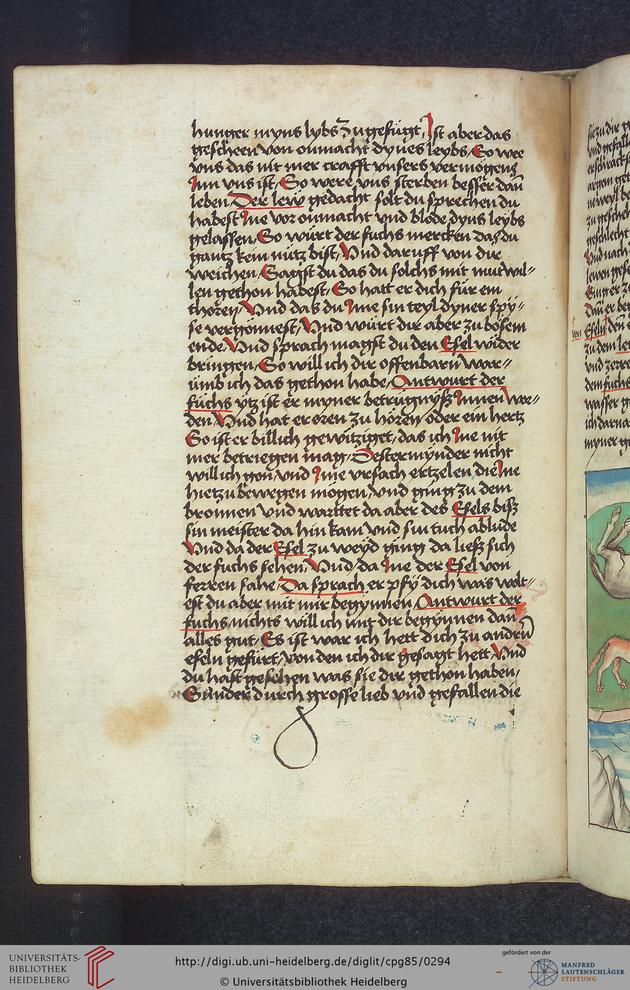 hunger myns lybs zugefügt, Ist aber das
gescheen von onmacht dynes leybs, So wee
vns das nit mer crafft vnsers vermögens
Inn vns ist, So were vns sterben besser dan
leben Der lew gedacht solt du sprechen du
habest Ine vor onmacht vnd blöde dyns leybs
gelassen, So würt der fuchs mercken das du
gantz kein nütz bist, Vnd daruff von dir
weichen, Sagst du das du solchs mit mutwil-
len gethon habest, So hatt er dich für ein
thoren, Vnd das du Ime sin teyl dyner spy-
se vergonnest, Vnd würt dir aber zu bösem
ende, Vnd sprach magst du den Esel wider
bringen, So will ich dir offenbarn war-
umb ich das gethon habe, Antwurt der
fuchs ytz ist er myner betrügnyß Innen wor-
den, Vnd hat er oren zu hören oder ein hertz
So ist er billich gewitziget, das ich Ine nit
mer betriegen mag, Destermynder nicht
will ich gon, vnd Ime vrsach ertzelen die Ine
hietzu bewegen mögen, vnd ging zu dem
bronnen vnd warttet da aber des Esels biß
sin meister da hin kam vnd sin tuch ablüde
Vnd da der Esel zu weyd ging da ließ sich
der fuchs sehen, Vnd, da Ine der Esel von
ferren sahe, Da sprach er pfy dich was wolt-
est du aber mit mir begynnen, Antwurt der
fuchs, nichts will ich mit dir begynnen dan
alles gut, Es ist war ich hett dich zu andern
eseln gefürt, von den ich dir gesagt hett, Vnd
du hast gesehen was sie dir gethon haben,
Sunder durch grosse lieb vnd gefallen die
UNIVERSITÄTS-
BIBLIOTHEK
HEIDELBERG
http://digi.ub.uni-heidelberg.de/diglit/cpg85/0294
© Universitätsbibliothek Heidelberg
gefördert von der
MANFRED
LAUTENSCHLÄGER
STIFTUNG